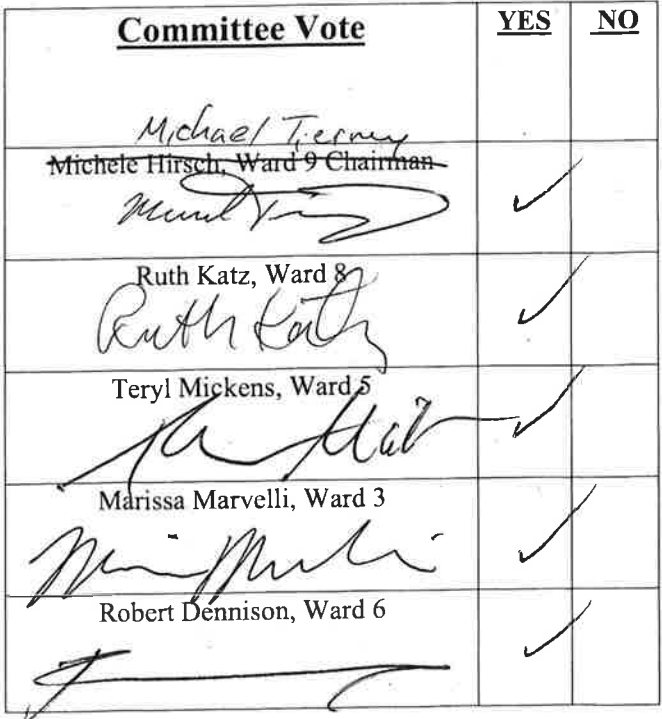 Committee Vote YES NO
Michael Tierney
Michele Hirsch, Ward 9 Chairman
✓
Ruth Katz, Ward 8
Ruth Katz ✓
Teryl Mickens, Ward 5
✓
Marissa Marvelli, Ward 3
✓
Robert Dennison, Ward 6
✓